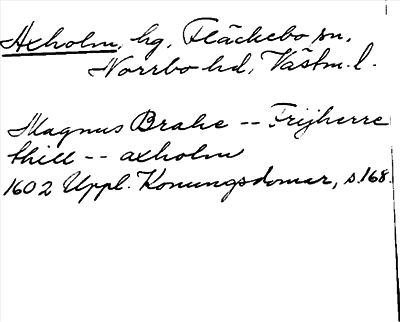 Axholm, hg, Fläckebo sn,
Norrbo hd, Västm. l.
Magnus Brahe -- Frijherre
thill -- axholm
1602 Uppl. Konungsdomar, s. 168.